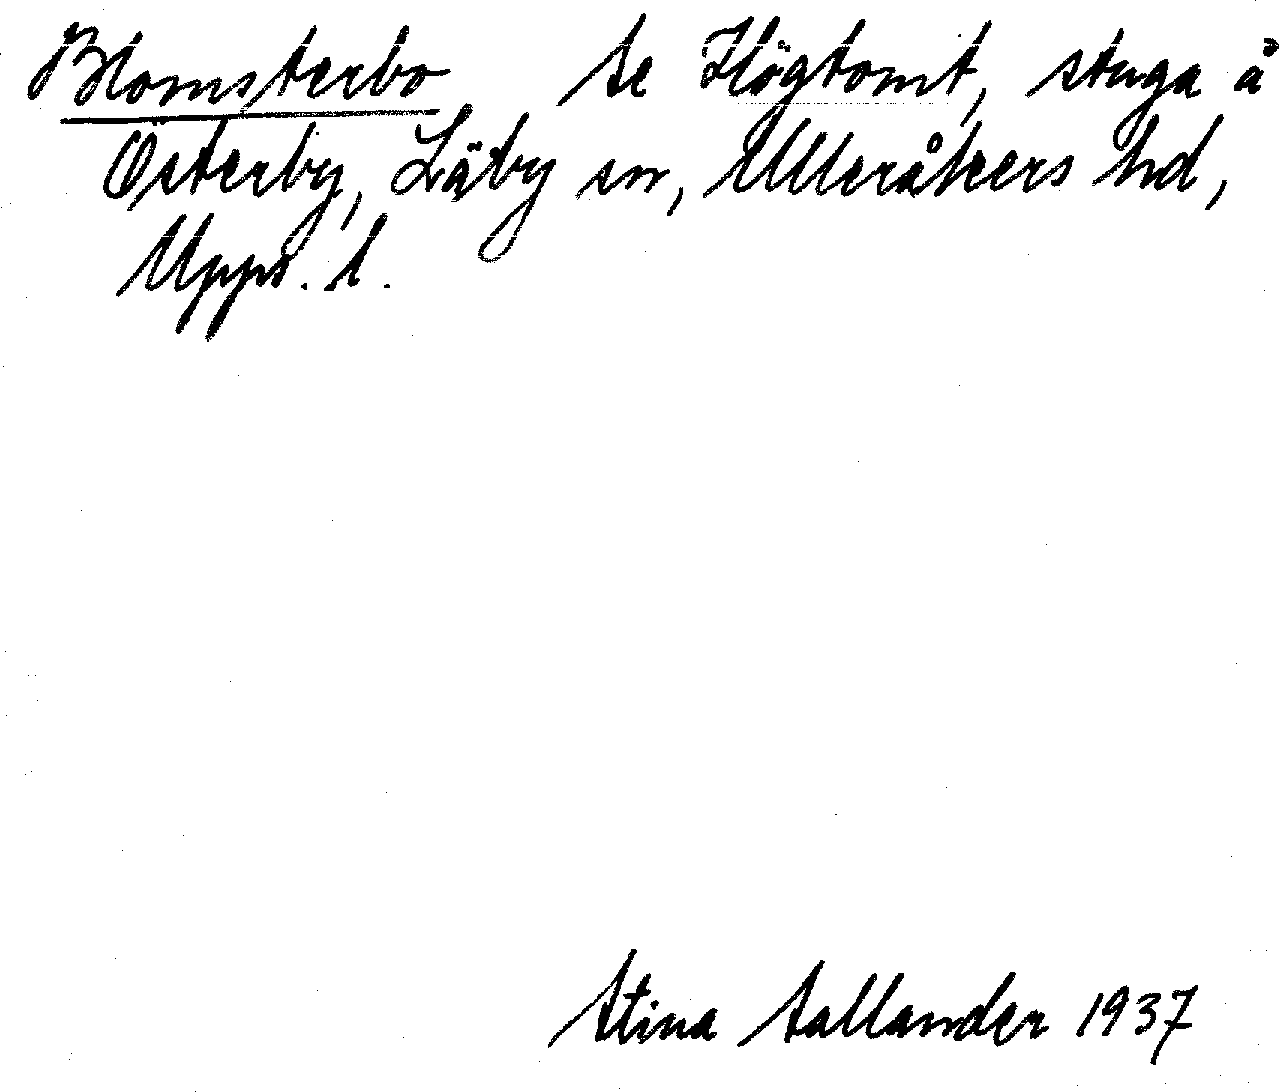 Blomsterbo Se Högtomt, stuga å
Österby, Läby sn, Ulleråkers hd,
Upps. l.
Stina Sallander 1937